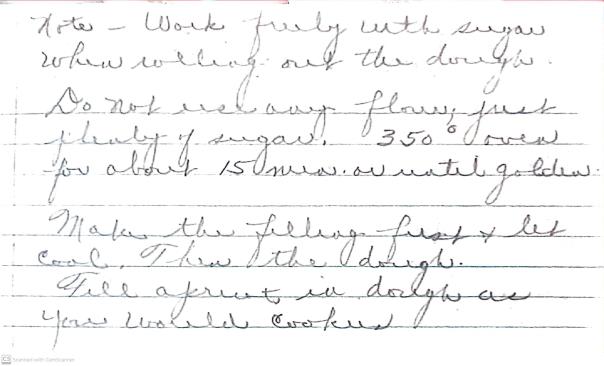 Note - Work freely with sugar
when rolling out the dough.
Do not use any flour, just
plenty of sugar. 350° oven
for about 15 min. or until golden.
Make the filling first & let
cool. Then the dough.
Fill apricot in dough as
you would cookies
CS Scanned with CamScanner